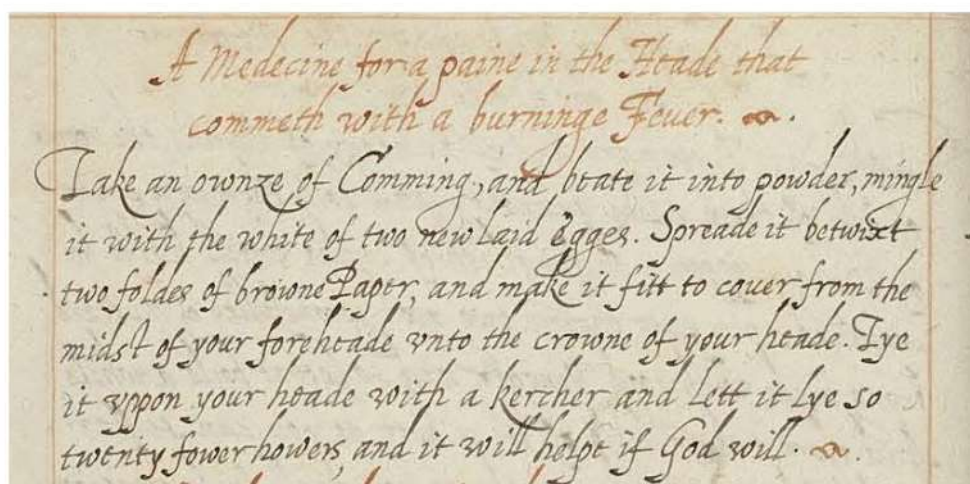 A Medecine for a paine in the Heade that
commeth with a burninge Feuer.
Take an ownze of Comming, and beate it into powder, mingle
it with the white of two new laid Egges. Spreade it betwixt
two foldes of browne Paper, and make it fitt to couer from the
midst of your foreheade vnto the crowne of your heade. Tye
it vppon your heade with a kercher and lett it lye so
twenty fower howers, and it will helpe if God will.